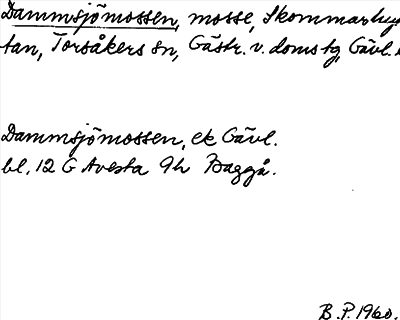 Dammsjömossen, mosse, Skommarhyt
tan, Torsåkers sn, Gästr. v. domstg, Gävl.
Dammsjömossen, ek Gävl.
bl. 12 G Avesta 9h Baggå.
B.P. 1960.